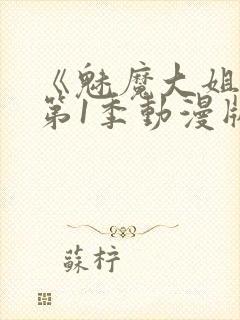 《魅魔大姐
第1季動漫版
蘇柠